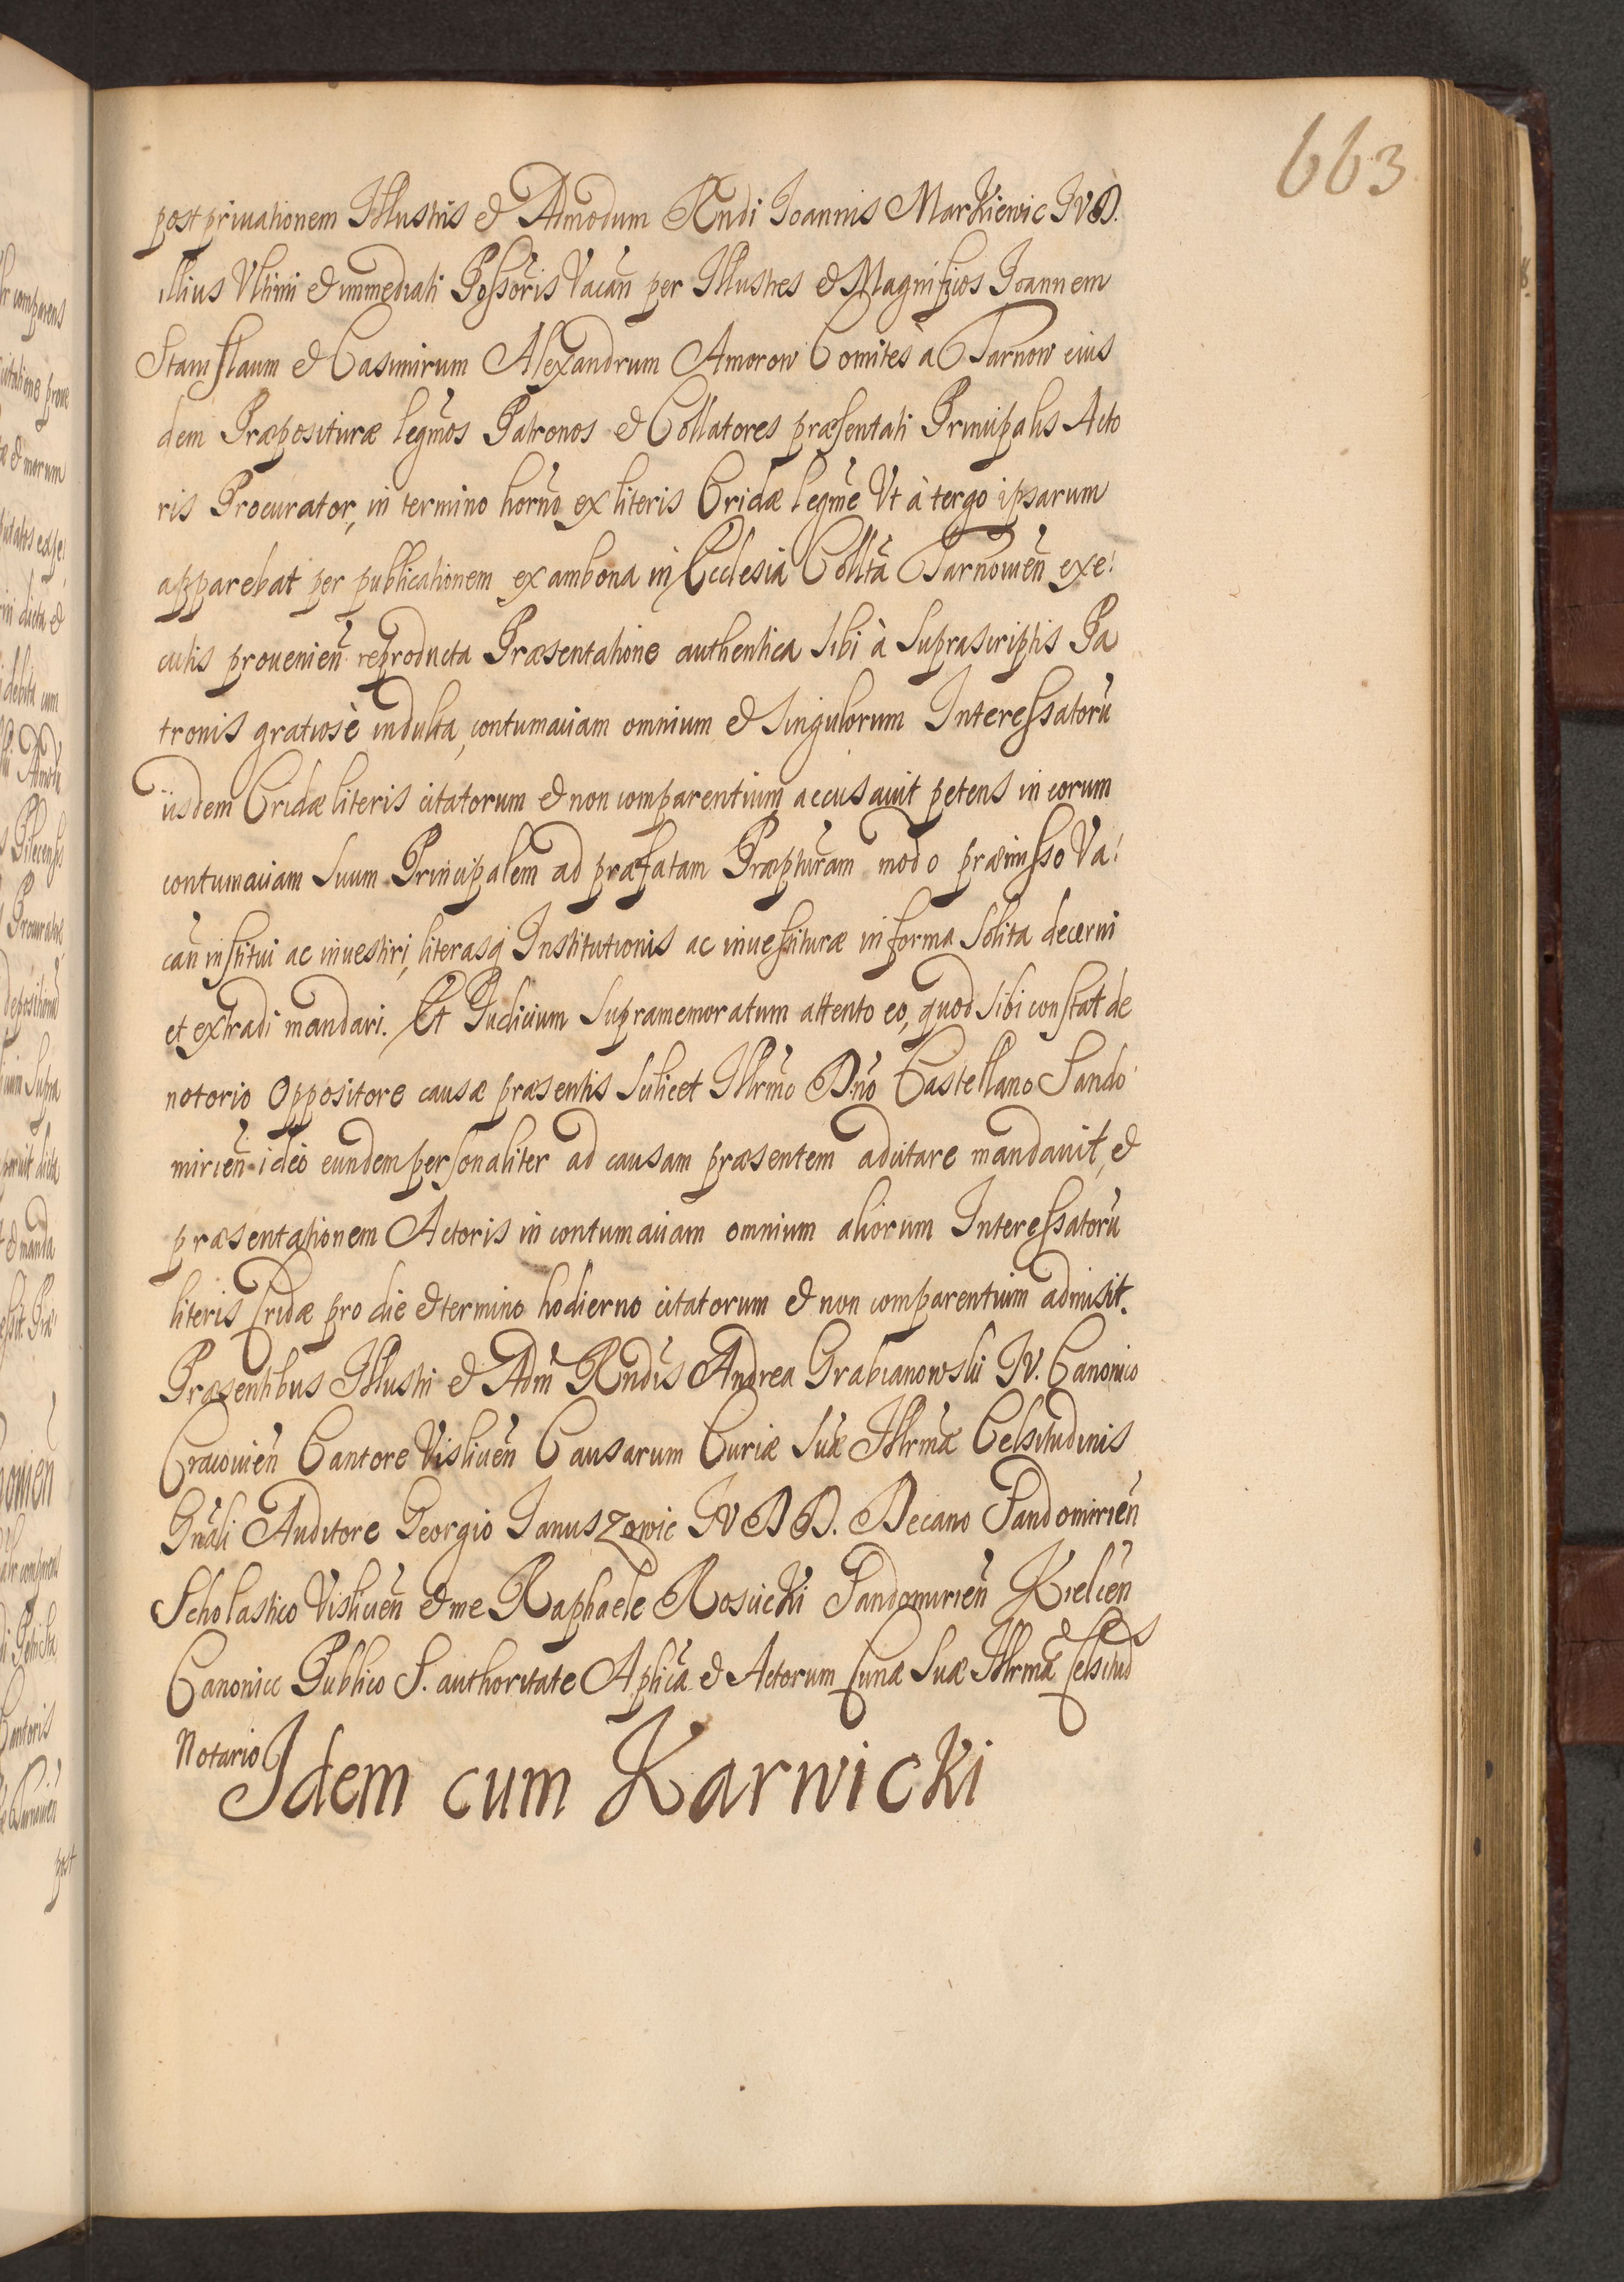 663
post priuationem Illustris & Admodum Rndi Joannis Markiewic JVD.
illius Vltimi & immediati Possoris Vacan̄ per Illustres & Magnificos Joannem
Stanislaum & Casimirum Alexandrum Amorow Comites à Tarnow eius
dem Præposituræ legmos Patronos & Collatores præsentati Principalis Acto
ris Procurator, in termino horno ex literis Cridæ legme Vt à tergo ipsarum
apparebat per publicationem ex ambona in Ecclesia Collta Tarnowien̄ exe:
cutis prouenien̄ reproducta Præsentatione authentica sibi à suprascriptis Pa
tronis gratiosè indulta, contumaciam omnium & singulorum Interessatorū
iisdem Cridæ literis citatorum & non comparentium accusauit petens in eorum
contumaciam suum Principalem ad præfatam Præpturam modo præmisso Va:
can̄ institui ac inuestiri, literasq Institutionis ac inuestituræ in forma solita decerni
et extradi mandari. Et Judicium supramemoratum attento eo, quod sibi constat de
notorio Oppositore causæ præsentis scilicet Illrmo Dno Castellano Sando
mirien̄ ideo eundem personaliter ad causam præsentem adcitare mandauit, &
præsentationem Actoris in contumaciam omnium aliorum Interessatorū
literis Cridæ pro die & termino hodierno citatorum & non comparentium admisit.
Præsentibus Illustri & Adm Rndis Andrea Grabianowski JV. Canonico
Cracouien̄ Cantore Vislicen̄ Causarum Curiæ Suæ Illrmæ Celsitudinis
Gnali Auditore Georgio Januszowic JVDD. Decano Sandomirien̄
Scholastico Vislicen̄ & me Raphaele Rosiicki Sandomirien̄ Kielcen̄
Canonicc Publico S. authoritate Aplica & Actorum Curiæ Suæ Illrmæ Celsitud
Notario
Idem cum Karwicki